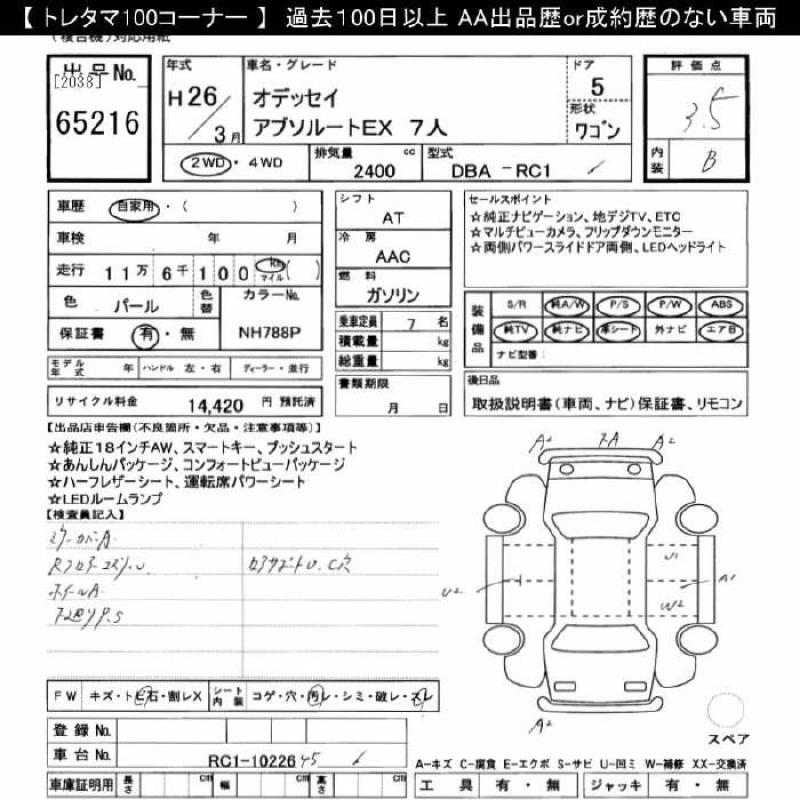 【 トレタマ100コーナー 】 過去100日以上 AA出品歴or成約歴のない車両
(複合機)対応用紙
出品No.
[2038]
65216
年式
H26/3月
車名・グレード
オデッセイ
アブソルートEX 7人
ドア
5
形状
ワゴン
評価点
3.5
内装
B
2WD・4WD
排気量
2400 cc
型式
DBA -RC1
車歴 自家用・( )
車検 年 月
走行 11万6千100 km マイル( )
色 パール
色替
カラーNo.
NH788P
保証書 有・無
モデル年式 年
ハンドル 左・右
ディーラー・並行
リサイクル料金 14,420 円 預託済
シフト
AT
冷房
AAC
燃料
ガソリン
乗車定員 7 名
積載量 kg
総重量 kg
書類期限
月 日
セールスポイント
☆純正ナビゲーション、地デジTV、ETC
☆マルチビューカメラ、フリップダウンモニター
☆両側パワースライドドア両側、LEDヘッドライト
装備品
S/R 純A/W P/S P/W ABS
純TV 純ナビ 革シート 外ナビ エアB
ナビ型番:
後日品
取扱説明書(車両、ナビ)保証書、リモコン
【出品店申告欄(不良箇所・欠品・注意事項等)】
☆純正18インチAW、スマートキー、プッシュスタート
☆あんしんパッケージ、コンフォートビューパッケージ
☆ハーフレザーシート、運転席パワーシート
☆LEDルームランプ
【検査員記入】
ミラーカバーA
ホイールA
A2
A2
U2
U1
A1
W2
A2
スペア
FW キズ・トビ石・割レX
シート内装 コゲ・穴・汚レ・シミ・破レ・スレ
登録No.
車台No. RC1-1022645
A-キズ C-腐食 E-エクボ S-サビ U-凹ミ W-補修 XX-交換済
車庫証明用 長さ cm 幅 cm 高さ cm
工具 有・無 ジャッキ 有・無